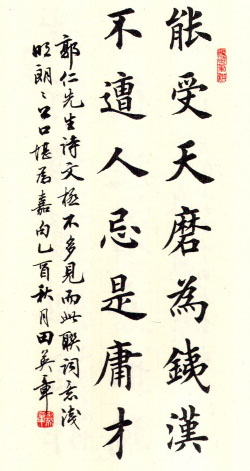 能受天磨為鐵漢
不遭人忌是庸才
郭仁先生诗文極不多見而此聯詞意淺
明朗朗上口堪為嘉句乙酉秋月田英章